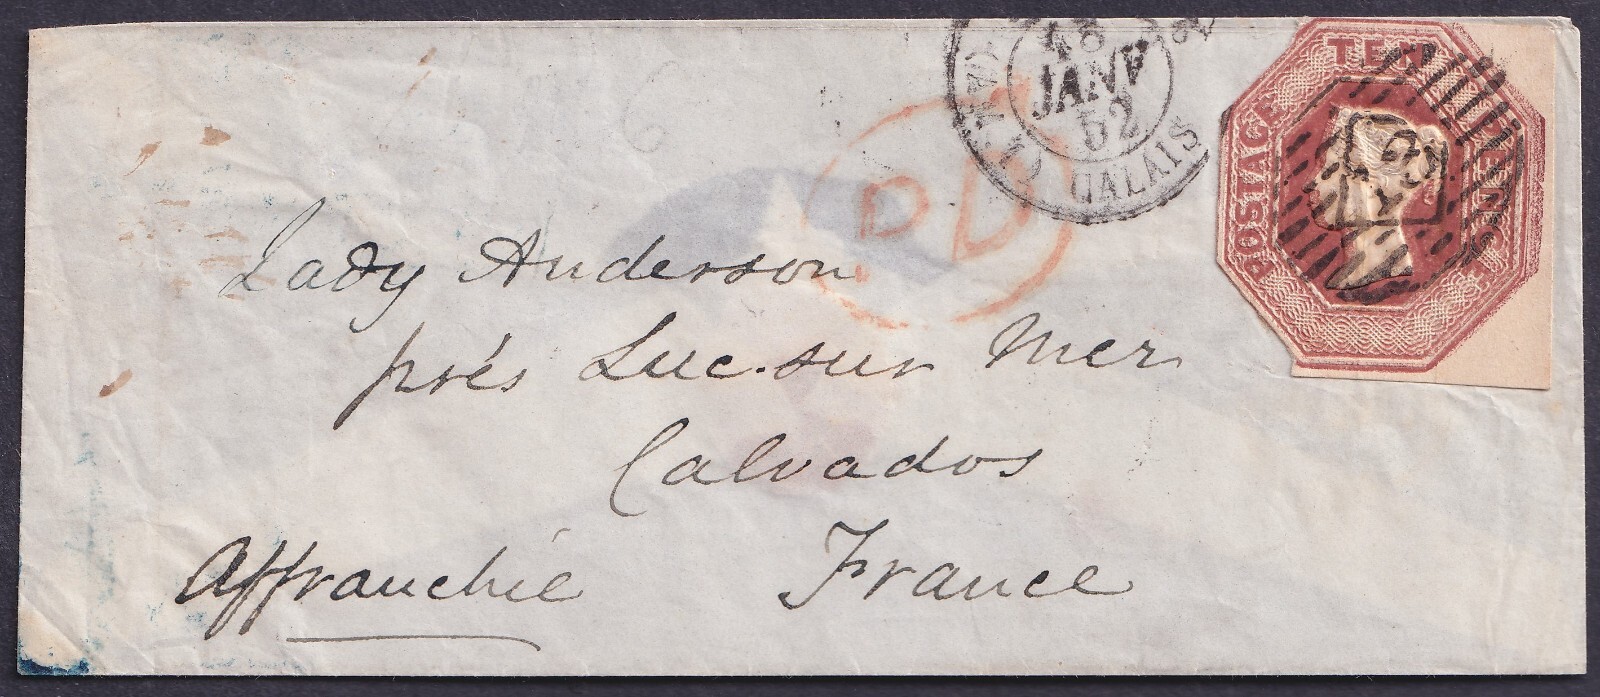 JANV
52
CALAIS
TEN
POSTAGE
PENCE
PD
Lady Anderson
prés Luc-sur Mer
Calvados
France
Affranchie